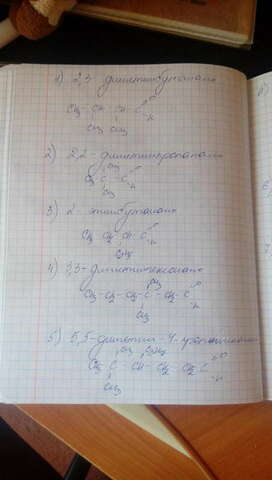 1) 2,3 - диметилбутаналь
CH3 - CH - CH - C
O
H
CH3 CH3
2) 2,2 - диметилпропаналь
CH3
CH3 C - C
O
H
CH3
3) 2 - этилбутаналь
CH3 CH2 CH C
O
H
C2H5
4) 3,3 - диметилгексаналь
CH3
CH3 - CH2 - CH2 - C - CH2 C
O
H
CH3
5) 5,5 - диметил - 4 -
CH3
CH3 C - CH - CH2 - CH2 C
O
H
CH3